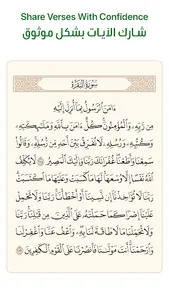 Share Verses With Confidence
شارك الآيات بشكل موثوق
سُورَةُ البَقَرَةِ
ءَامَنَ ٱلرَّسُولُ بِمَآ أُنزِلَ إِلَيْهِ
مِن رَّبِّهِۦ وَٱلْمُؤْمِنُونَ كُلٌّ ءَامَنَ بِٱللَّهِ وَمَلَٰٓئِكَتِهِۦ
وَكُتُبِهِۦ وَرُسُلِهِۦ لَا نُفَرِّقُ بَيْنَ أَحَدٍ مِّن رُّسُلِهِۦ وَقَالُوا۟
سَمِعْنَا وَأَطَعْنَا غُفْرَانَكَ رَبَّنَا وَإِلَيْكَ ٱلْمَصِيرُ ٢٨٥ لَا يُكَلِّفُ
ٱللَّهُ نَفْسًا إِلَّا وُسْعَهَا لَهَا مَا كَسَبَتْ وَعَلَيْهَا مَا ٱكْتَسَبَتْ
رَبَّنَا لَا تُؤَاخِذْنَآ إِن نَّسِينَآ أَوْ أَخْطَأْنَا رَبَّنَا وَلَا تَحْمِلْ
عَلَيْنَآ إِصْرًا كَمَا حَمَلْتَهُۥ عَلَى ٱلَّذِينَ مِن قَبْلِنَا رَبَّنَا
وَلَا تُحَمِّلْنَا مَا لَا طَاقَةَ لَنَا بِهِۦ وَٱعْفُ عَنَّا وَٱغْفِرْ لَنَا
وَٱرْحَمْنَآ أَنتَ مَوْلَىٰنَا فَٱنصُرْنَا عَلَى ٱلْقَوْمِ ٱلْكَٰفِرِينَ ٢٨٦